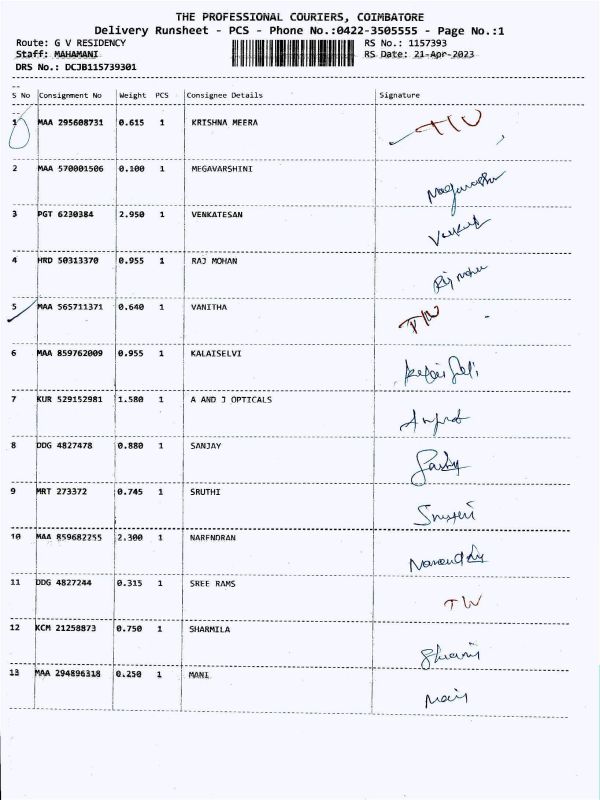 THE PROFESSIONAL COURIERS, COIMBATORE
Delivery Runsheet - PCS - Phone No.:0422-3505555 - Page No.:1
Route: G V RESIDENCY RS No.: 1157393
Staff: MAHAMANI RS Date: 21-Apr-2023
DRS No.: DCJB115739301
S No Consignment No Weight PCS Consignee Details Signature
1 MAA 295608731 0.615 1 KRISHNA MEERA T/W
2 MAA 570001506 0.100 1 MEGAVARSHINI
3 PGT 6230384 2.950 1 VENKATESAN
4 HRD 50313370 0.955 1 RAJ MOHAN
5 MAA 565711371 0.640 1 VANITHA T/W
6 MAA 859762009 0.955 1 KALAISELVI
7 KUR 529152981 1.580 1 A AND J OPTICALS
8 DDG 4827478 0.880 1 SANJAY
9 MRT 273372 0.745 1 SRUTHI
10 MAA 859682255 2.300 1 NARENDRAN
11 DDG 4827244 0.315 1 SREE RAMS TW
12 KCM 21258873 0.750 1 SHARMILA
13 MAA 294896318 0.250 1 MANI Mani